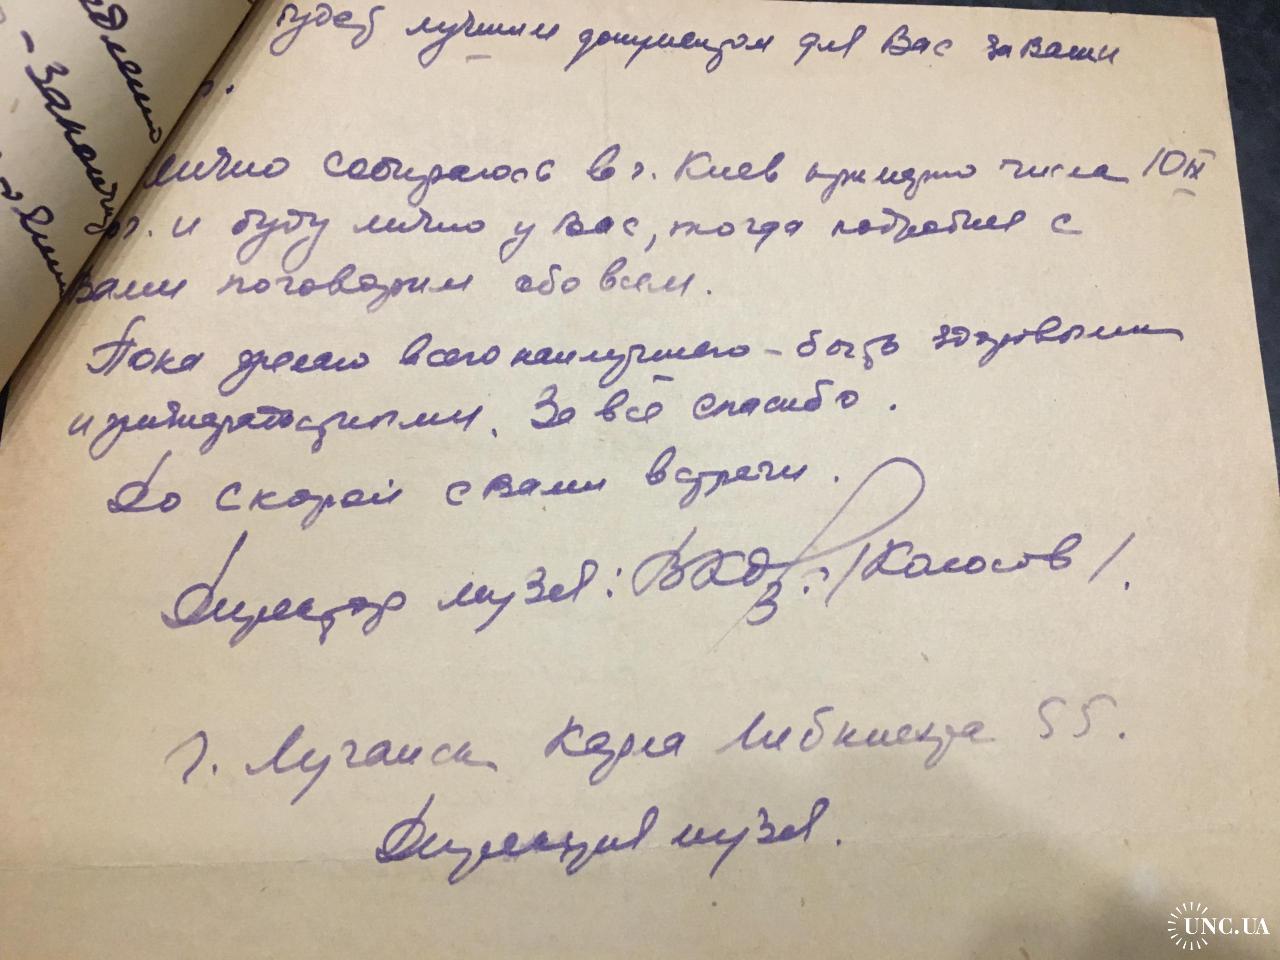 будет лучшим документом для Вас за Ваши
лично собираюсь в г. Киев примерно числа 10 IX
и буду лично у Вас, тогда подробнее с
Вами поговорим обо всем.
Пока желаю всего наилучшего – быть здоровыми
и жизнерадостными. За всё спасибо.
До скорой с Вами встречи.
Директор музея: /Колосов/.
г. Луганск Карла Либкнехта 55.
Дирекция музея.
UNC.UA